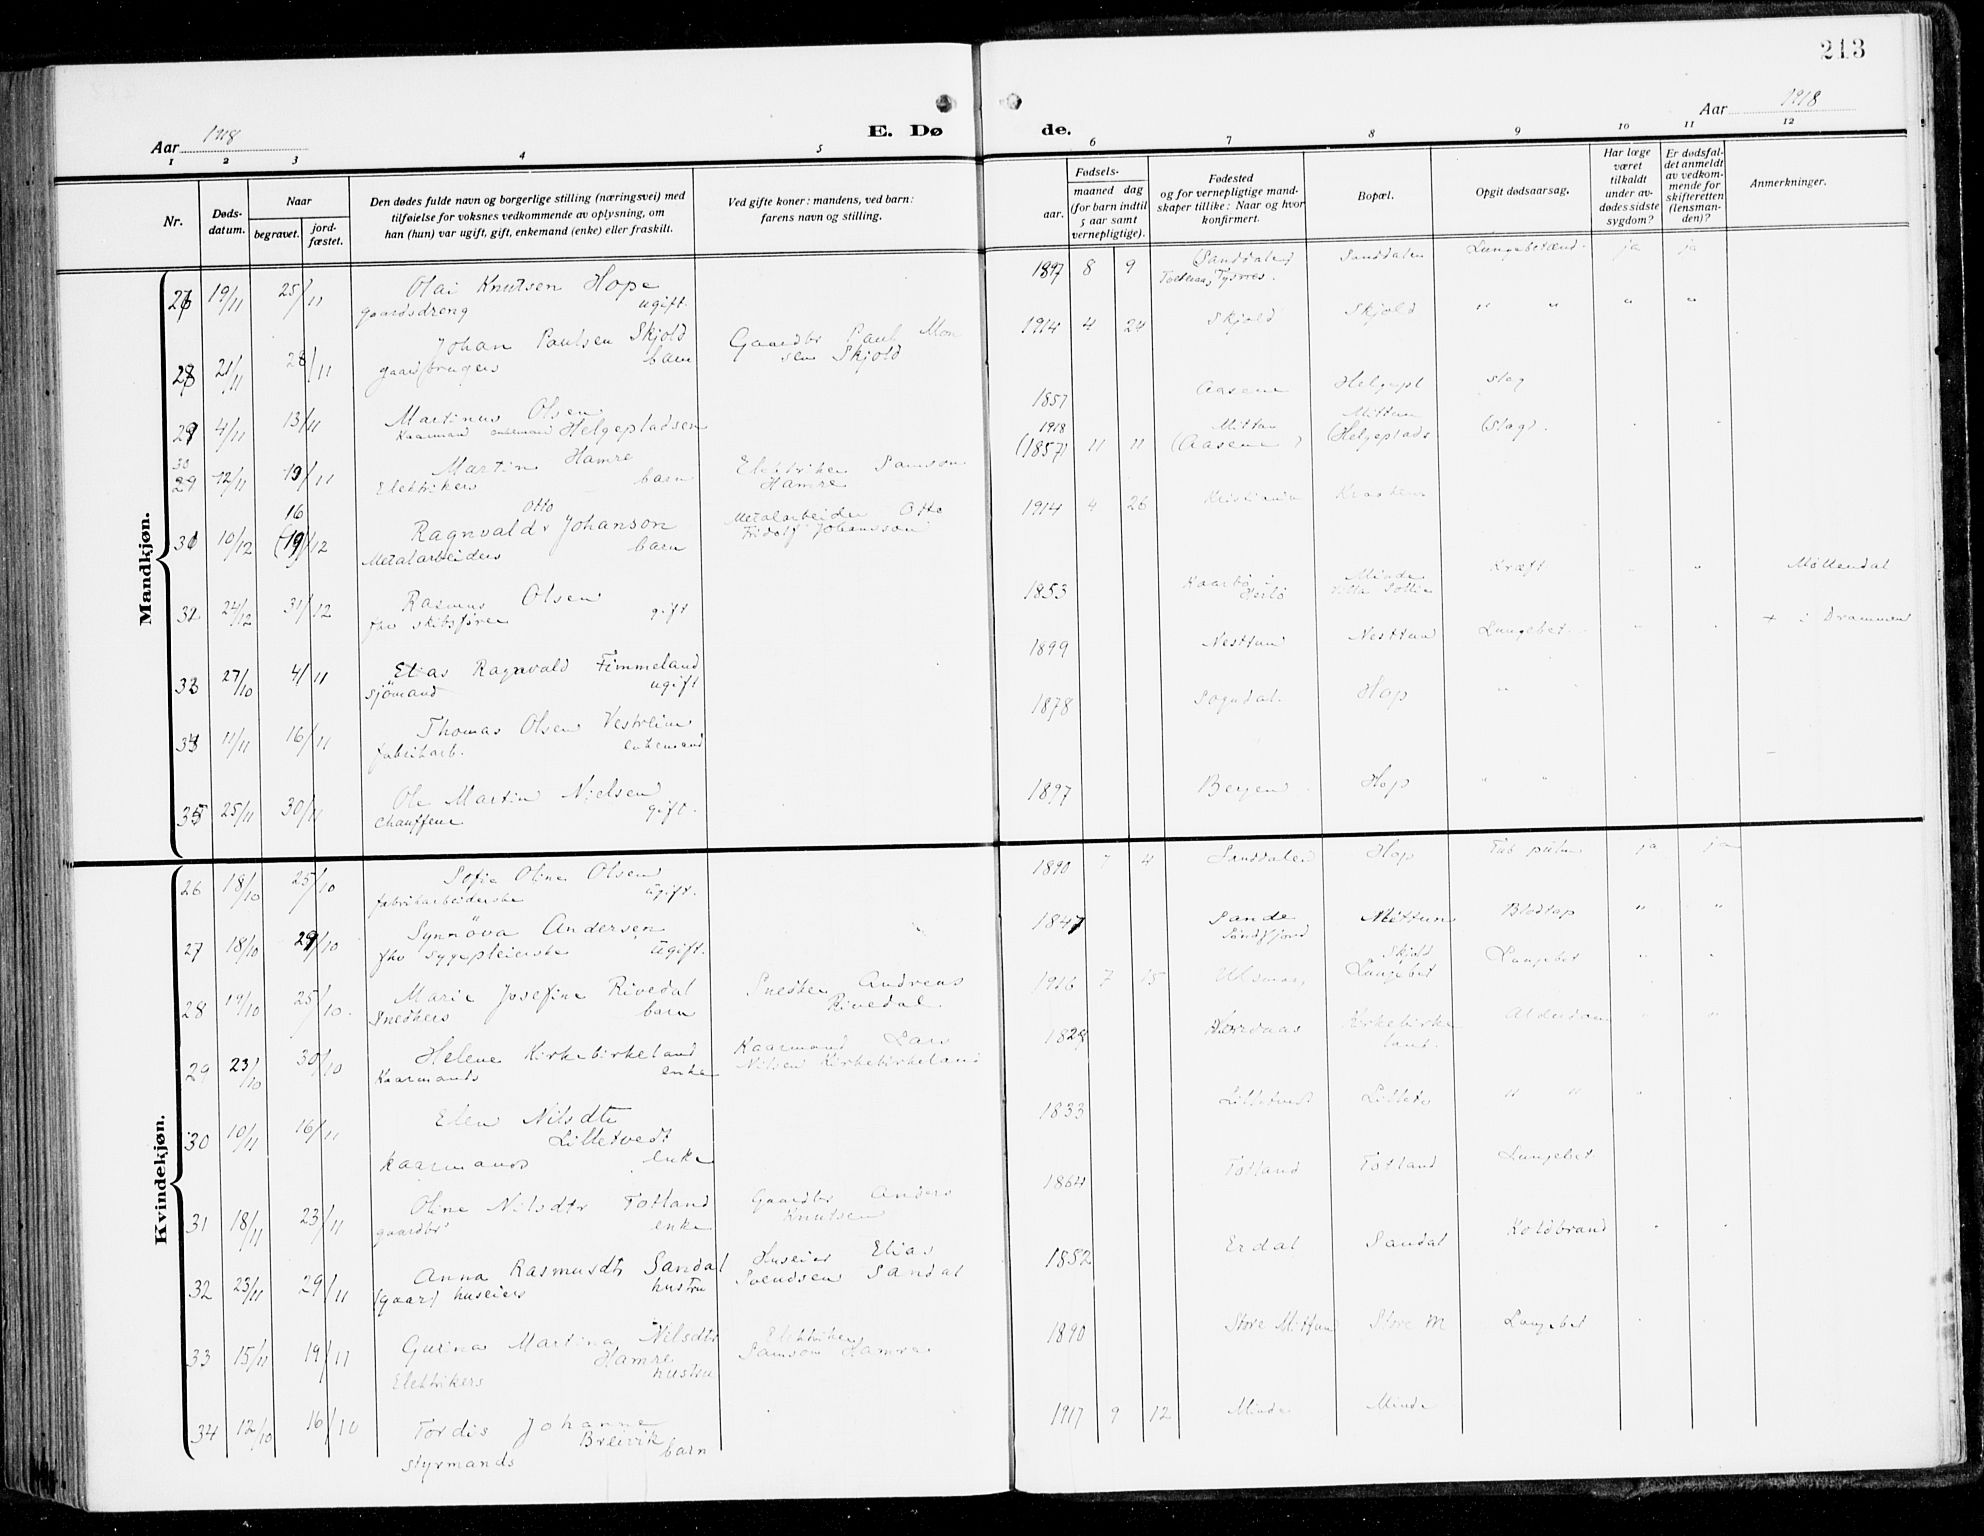 213
Aar 1918
E. Dø
de.
Aar 1918
1 2 3 4 5 6 7 8 9 10 11 12
Nr.
Døds-
datum.
Naar
begravet.
jord-
fæstet.
Den dødes fulde navn og borgerlige stilling (næringsvei) med
tilføielse for voksnes vedkommende av oplysning, om
han (hun) var ugift, gift, enkemand (enke) eller fraskilt.
Ved gifte koner: mandens, ved barn:
farens navn og stilling.
Fødsels-
aar.
maaned dag
(for barn indtil
5 aar samt
vernepligtige).
Fødested
og for vernepligtige mand-
skaper tillike: Naar og hvor
konfirmert.
Bopæl.
Opgit dødsaarsag.
Har læge
været
tilkaldt
under av-
dødes sidste
sygdom?
Er dødsfal-
det anmeldt
av vedkom-
mende for
skifteretten
(lensman-
den)?
Anmerkninger.
Mandkjøn.
19/11 25/11 Olai Knutsen Hope 1897 8 9 Sanddalen Sanddalen Lungebetænd. ja ja
gaardsdreng ugift. Tysnes.
28 21/11 28/11 Johan Paulsen Skjold Gaardbr Paul Mon 1914 4 24 Skjold Skjold " " " "
gaardbrugers barn sen Skjold
29 4/11 13/11 Martinus Olsen 1857 Aasene Helgepl slag
Kaarmand enkemand Helgepladsen
30
29 12/11 19/11 Martin Hamre Elektriker Samson 1918 (1857) 11 11 Mittun (Aasene) Mittun (Helgeplads (slag).
Elektrikers barn Hamre
10/12 16 (19)/12 Otto
Ragnvald Johanson Metalarbeider Otto 1914 4 26 Kristiania
Metalarbeiders barn Fridolf Johansson
24/12 31/12 Rasmus Olsen 1853 Minde Kræft " " Møllendal
fhv skibsfører gift
27/10 4/11 Elias Ragnvald Fimmeland 1899 Nesttun Nesttun Lungebet. " " + i Drammen
sjømand ugift
11/11 16/11 Thomas Olsen Vestrheim 1878 Sogndal. Hop " "
fabrikarb. enkemand
35 25/11 30/11 Ole Martin Nielsen 1897 Bergen Hop " "
Chauffeur gift.
Kvindekjøn.
26 18/10 25/10 Sofie Oline Olsen 1890 7 4 Sanddalen Hop Tub pulm ja ja
fabrikarbeiderske ugift.
27 18/10 29/10 Synnöva Andersen 1847 Sande Mittun Blodtap " "
fhv sygepleierske ugift. Söndfjord
28 19/10 25/10 Marie Josefine Rivedal Snedker Andreas 1916 7 15 Skjold Lungebet " "
Snedkers barn Rivedal.
29 23/10 30/10 Helene Kirkebirkeland Kaarmand Lars Kirkebirke Alderdom " "
Kaarmands enke Nilsen Kirkebirkeland land.
30 10/11 16/11 Elen Nilsdtr 1833 Lilletvedt Lilletv " " "
Lilletvedt
Kaarmands enke
31 18/11 23/11 Oline Nilsdtr Totland Gaardbr Anders 1864 Totland Totland Lungebet
gaardbr enke Knutsen
32 23/11 29/11 Anna Rasmusdtr Sandal Huseier Elias 1852 Erdal Sandal Koldbrand
(gaar) huseiers hustru Svendsen Sandal
33 15/11 19/11 Gurina Martina Nilsdtr Elektriker 1890 Store Mittun Store M Lungebet
Hamre Samson Hamre
Elektrikers hustru
34 12/10 16/10 Tordis Johanne 1917 9 12 Minde Minde
Breivik
styrmands barn